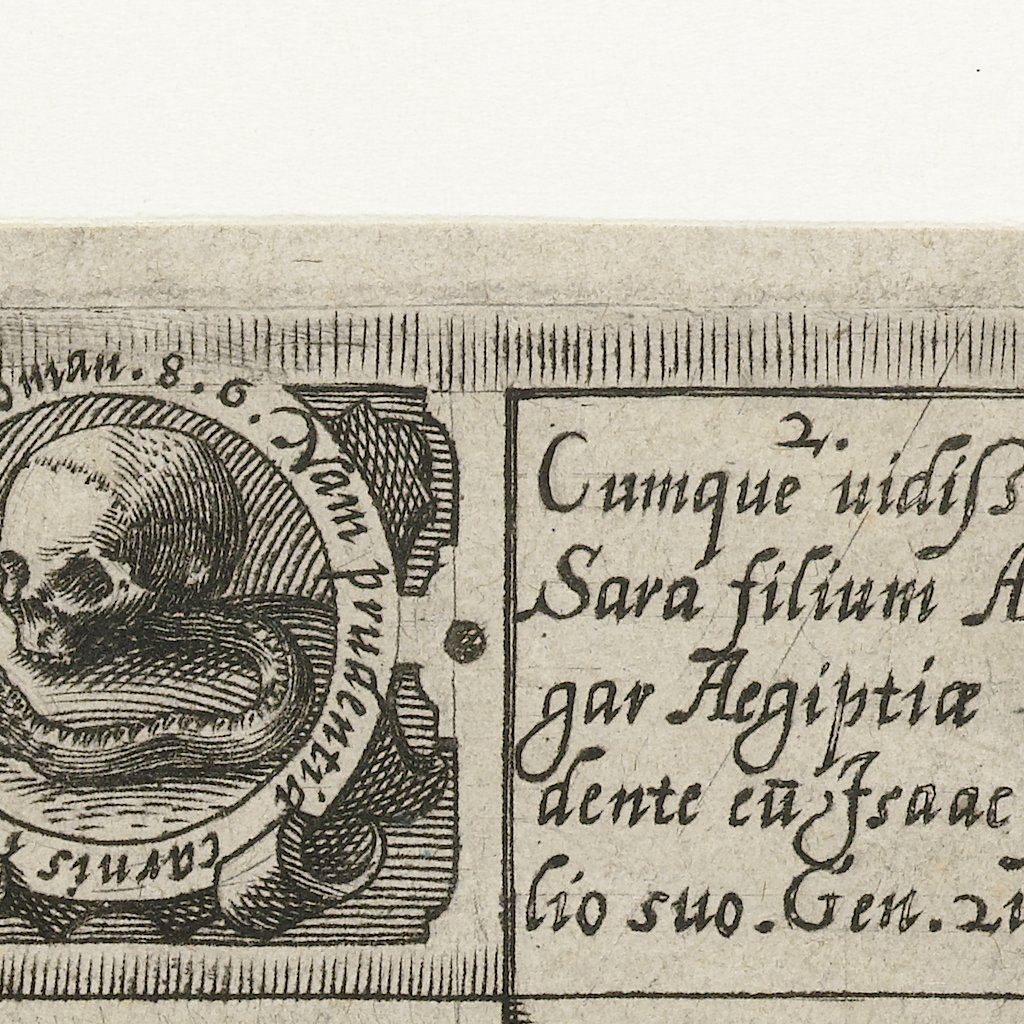 oman. 8. 6. Nam prudentia carnis
2.
Cumque uidiſs
Sara filium A
gar Aegiptiæ
dente eū Isaac
lio suo. Gen. 21